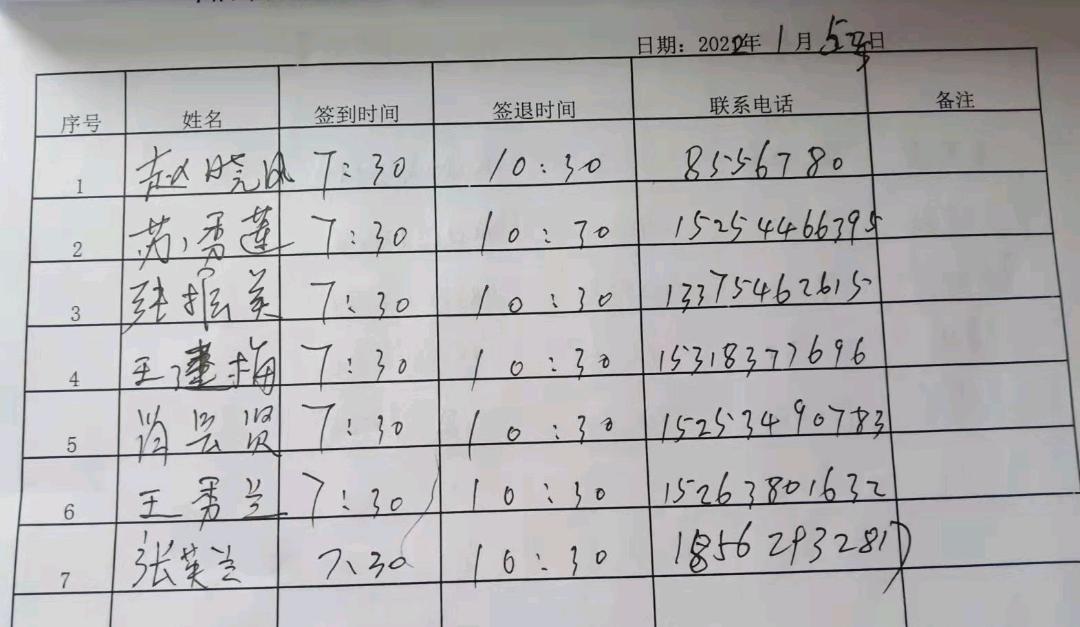 日期：2022年1月5号日
序号 姓名 签到时间 签退时间 联系电话 备注
1 赵晓 7:30 10:30 8556780
2 秀莲 7:30 10:30 15254466395
3 张振英 7:30 10:30 13375462615
4 王 梅 7:30 10:30 15318377696
5 肖云贤 7:30 10:30 15253490783
6 王秀兰 7:30 10:30 15263801632
7 张英兰 7:30 10:30 18562932817